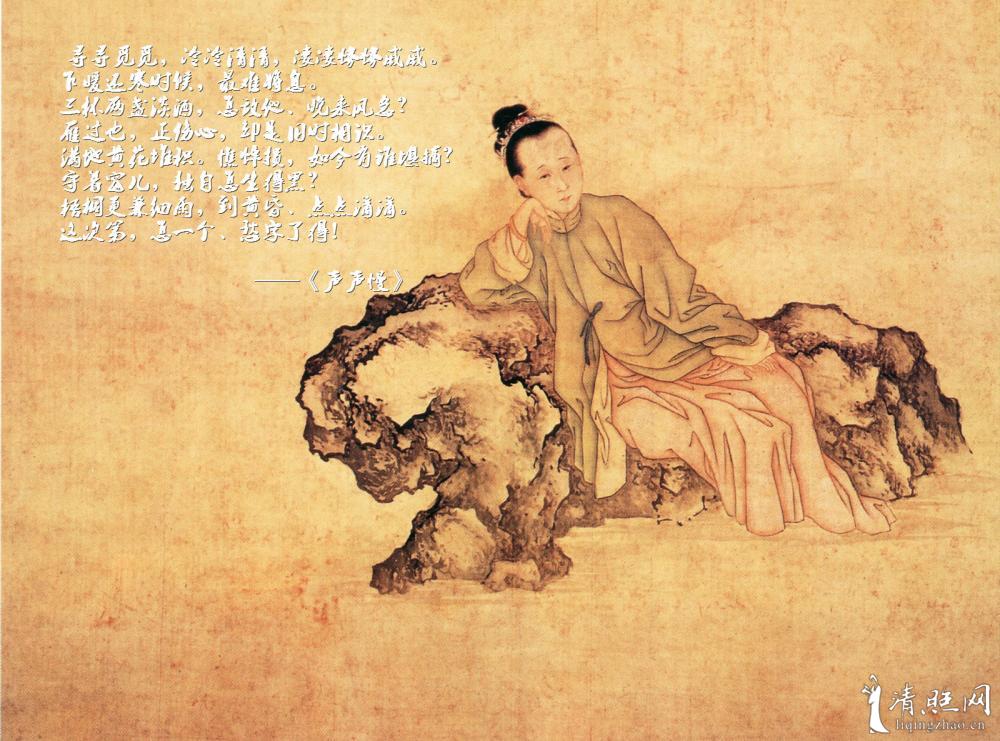 寻寻觅觅，冷冷清清，凄凄惨惨戚戚。
乍暖还寒时候，最难将息。
三杯两盏淡酒，怎敌他、晚来风急？
雁过也，正伤心，却是旧时相识。
满地黄花堆积。憔悴损，如今有谁堪摘？
守着窗儿，独自怎生得黑？
梧桐更兼细雨，到黄昏、点点滴滴。
这次第，怎一个、愁字了得！
——《声声慢》
清照网
liqingzhao.cn